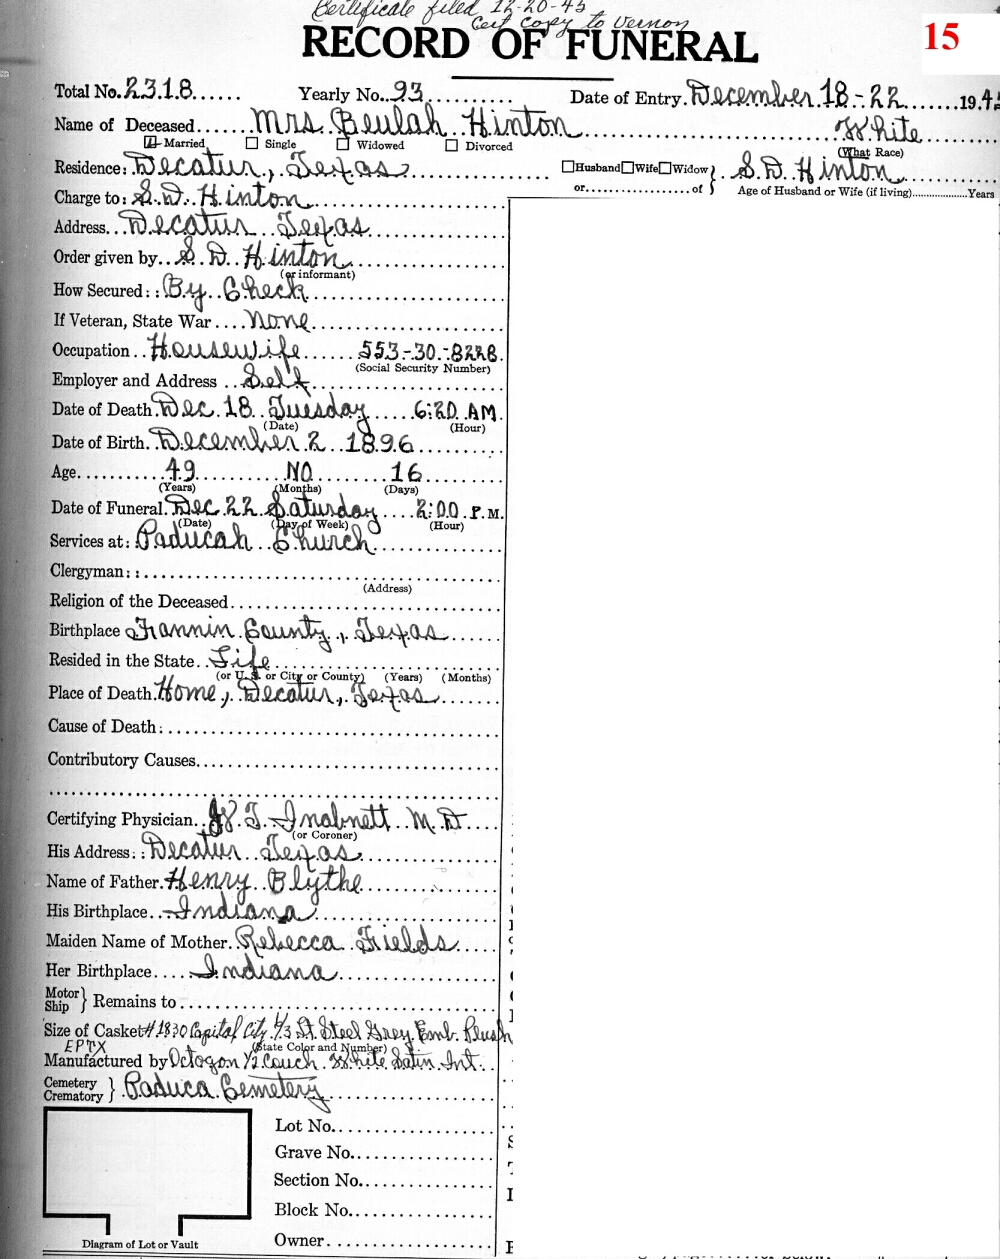 Certificate filed 12-20-45
Cert copy to Vernon
RECORD OF FUNERAL
15
Total No. 2318 Yearly No. 93 Date of Entry. December 18-22 194
Name of Deceased Mrs. Beulah Hinton White
Married Single Widowed Divorced (What Race)
Residence: Decatur, Texas Husband Wife Widow } S.D. Hinton
or of Age of Husband or Wife (if living) Years
Charge to: S.D. Hinton
Address Decatur Texas
Order given by S.D. Hinton
(or informant)
How Secured: : By Check
If Veteran, State War None
Occupation Housewife 553-30-8228
(Social Security Number)
Employer and Address Self
Date of Death. Dec. 18 Tuesday 6:20 AM.
(Date) (Hour)
Date of Birth. December 2 1896
Age 49 NO 16
(Years) (Months) (Days)
Date of Funeral. Dec. 22 Saturday 2:00 P.M.
(Date) (Day of Week) (Hour)
Services at: Paducah Church
Clergyman: :
(Address)
Religion of the Deceased
Birthplace Fannin County, Texas
Resided in the State Life
(or U. S. or City or County) (Years) (Months)
Place of Death. Home, Decatur, Texas
Cause of Death:
Contributory Causes
Certifying Physician. T. Inabnett M.D
(or Coroner)
His Address: : Decatur Texas
Name of Father. Henry Blythe
His Birthplace Indiana
Maiden Name of Mother. Rebecca Fields
Her Birthplace Indiana
Motor
Ship } Remains to
Size of Casket #1830 Capital City 6/3 St. Steel Grey Emb. Plush
EPTX (State Color and Number)
Manufactured by Octogon 1/2 Couch White Satin Int.
Cemetery
Crematory } Paduca Cemetery
Lot No.
Grave No.
Section No.
Block No.
Owner
Diagram of Lot or Vault